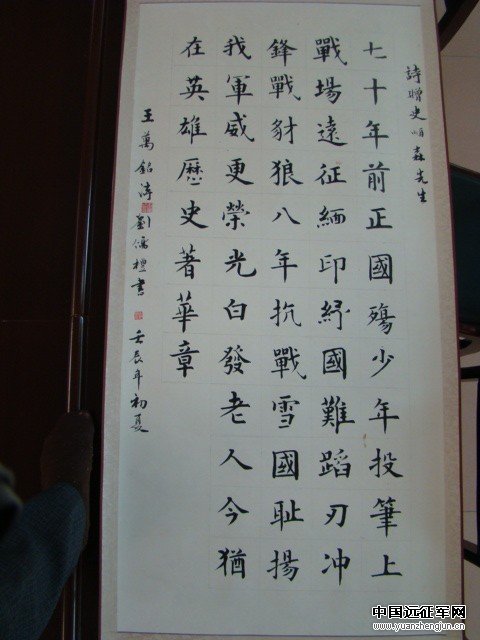 詩贈史順森先生
七十年前正國殤少年投筆上
戰場遠征緬印紓國難蹈刃冲
鋒戰豺狼八年抗戰雪國耻揚
我軍威更榮光白發老人今猶
在英雄歷史著華章
王萬銘詩
劉儒禮書
壬辰年初夏
中国远征军网
www.yuanzhengjun.cn